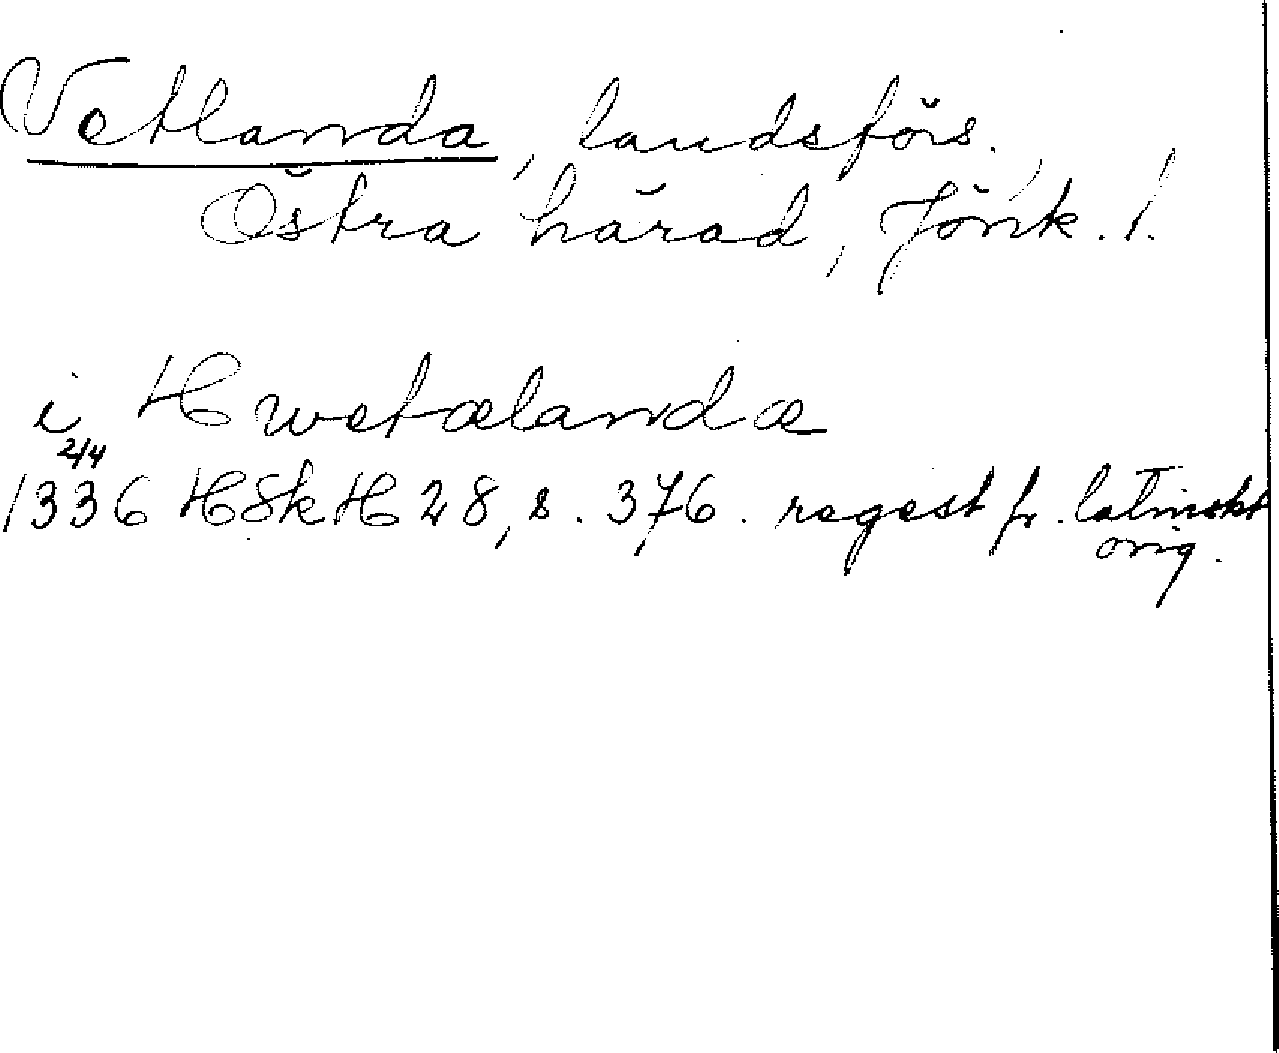 Vetlanda, landsförs.,
Östra härad, Jönk. l.
i Hwetælandæ
2/4
1336 HSkH 28, s. 376. regest fr. latinskt
orig.